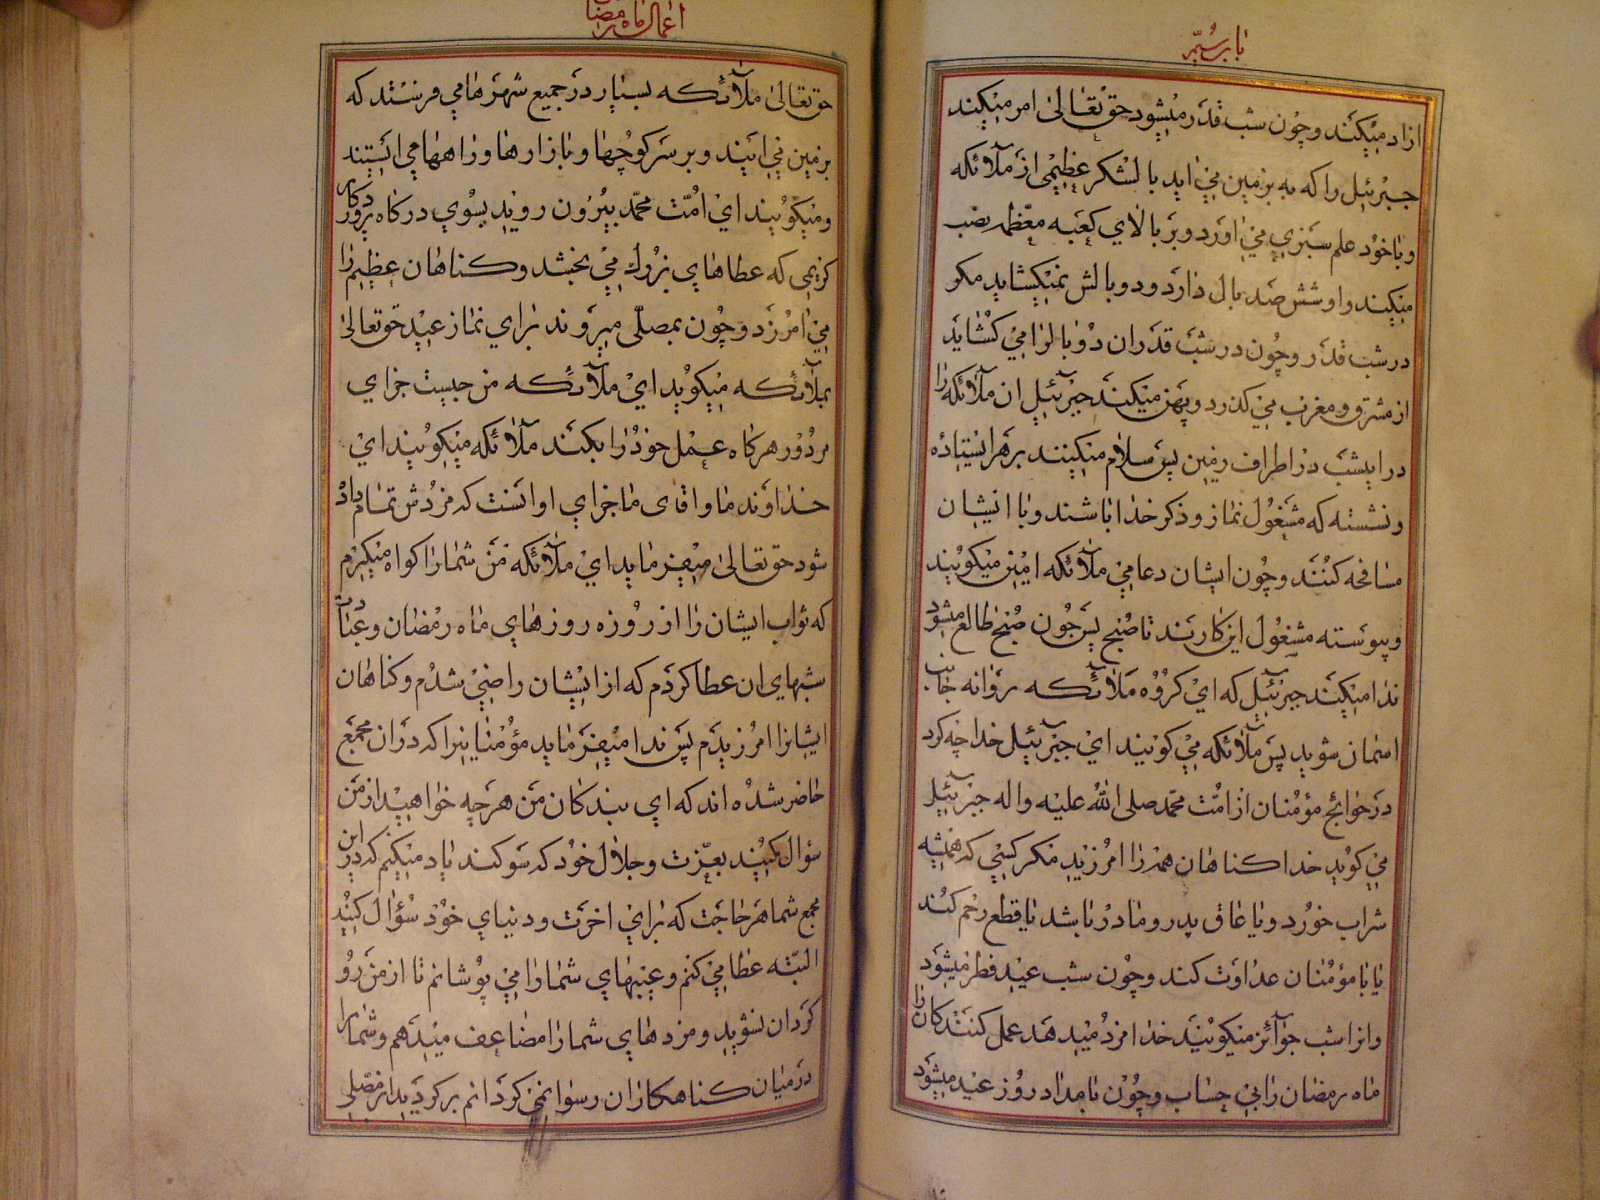 باب سیم
ازاد میکند و چون شب قدر میشود حق تعالی امر میکند
جبرئیل را که به بزمین می اید با لشکر عظیمی از ملائکه
و با خود علم سبزی می اورد و بر بالای کعبه معظمه نصب
میکند و او شش صد بال دارد و دو بالش نمیکشاید مکر
در شب قدر و چون در شب قدر ان دو بال را می کشاید
از مشرق و مغرب می کذرد و پهن میکند جبرئیل ان ملائکه را
در اینشب در اطراف زمین پس سلام میکنند بر هر ایستاده
و نشسته که مشغول نماز و ذکر خدا باشند و با ایشان
مسافحه کنند و چون ایشان دعا می ملائکه امین میکویند
و پیوسته مشغول این کارند تا صبح پس چون صبح طالع میشود
ندا میکند جبرئیل که ای کروه ملائکه روانه جانب
اسمان شوید پس ملائکه می کویند ای جبرئیل خدا چه کرد
در حوائج مؤمنان از امت محمد صلی الله علیه و اله جبرئیل
می کوید خدا کناهان همه را امرزید مکر کسی که همیشه
شراب خورد و یا عاق پدر و مادر باشد یا قطع رحم کند
یا با مؤمنان عداوت کند و چون شب عید فطر میشود
و انرا شب جوائز میکویند خدا مزد میدهد عمل کنندکان را
ماه رمضان را بی حساب و چون بامداد روز عید میشود
اعمال ماه رمضان
حق تعالی ملائکه بسیار در جمیع شهرها می فرستد که
بزمین می ایند و بر سر کوچها و بازارها و راهها می ایستند
و میکویند ای امت محمد بیرون روید بسوی درکاه پروردکار
کریمی که عطاهای بزرک می بخشد و کناهان عظیم را
می امرزد و چون بمصلی میروند برای نماز عید حق تعالی
بملائکه میکوید ای ملائکه من چیست جزای
مزدور هرکاه عمل خود را بکند ملائکه میکویند ای
خداوند ما و اقای ما جزای او انست که مزدش تمام داده
شود حق تعالی میفرماید ای ملائکه من شما را کواه میکیرم
که ثواب ایشان را از روزه روزهای ماه رمضان و عبادت
شبهای ان عطا کردم که از ایشان راضی شدم و کناهان
ایشانرا امرزیدم پس ندا میفرماید مؤمنانیرا که در ان مجمع
حاضر شده اند که ای بندکان من هر چه خواهید از من
سؤال کنید بعزت و جلال خود که سوکند یاد میکنم که در این
مجمع شما هر حاجت که برای اخرت و دنیای خود سؤال کنید
البته عطا می کنم و عیبهای شما را می پوشانم تا از من رو
کردان نشوید و مزدهای شما را مضاعف میدهم و شما را
در میان کناهکاران رسوا نمی کردانم بر کردید از مصلی